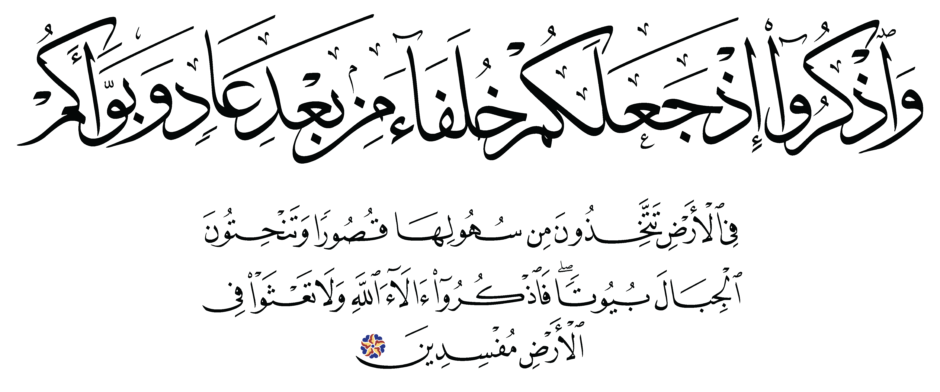 وَٱذْكُرُوٓا۟ إِذْ جَعَلَكُمْ خُلَفَآءَ مِنۢ بَعْدِ عَادٍ وَبَوَّأَكُمْ
فِى ٱلْأَرْضِ تَتَّخِذُونَ مِن سُهُولِهَا قُصُورًا وَتَنْحِتُونَ
ٱلْجِبَالَ بُيُوتًا ۖ فَٱذْكُرُوٓا۟ ءَالَآءَ ٱللَّهِ وَلَا تَعْثَوْا۟ فِى
ٱلْأَرْضِ مُفْسِدِينَ